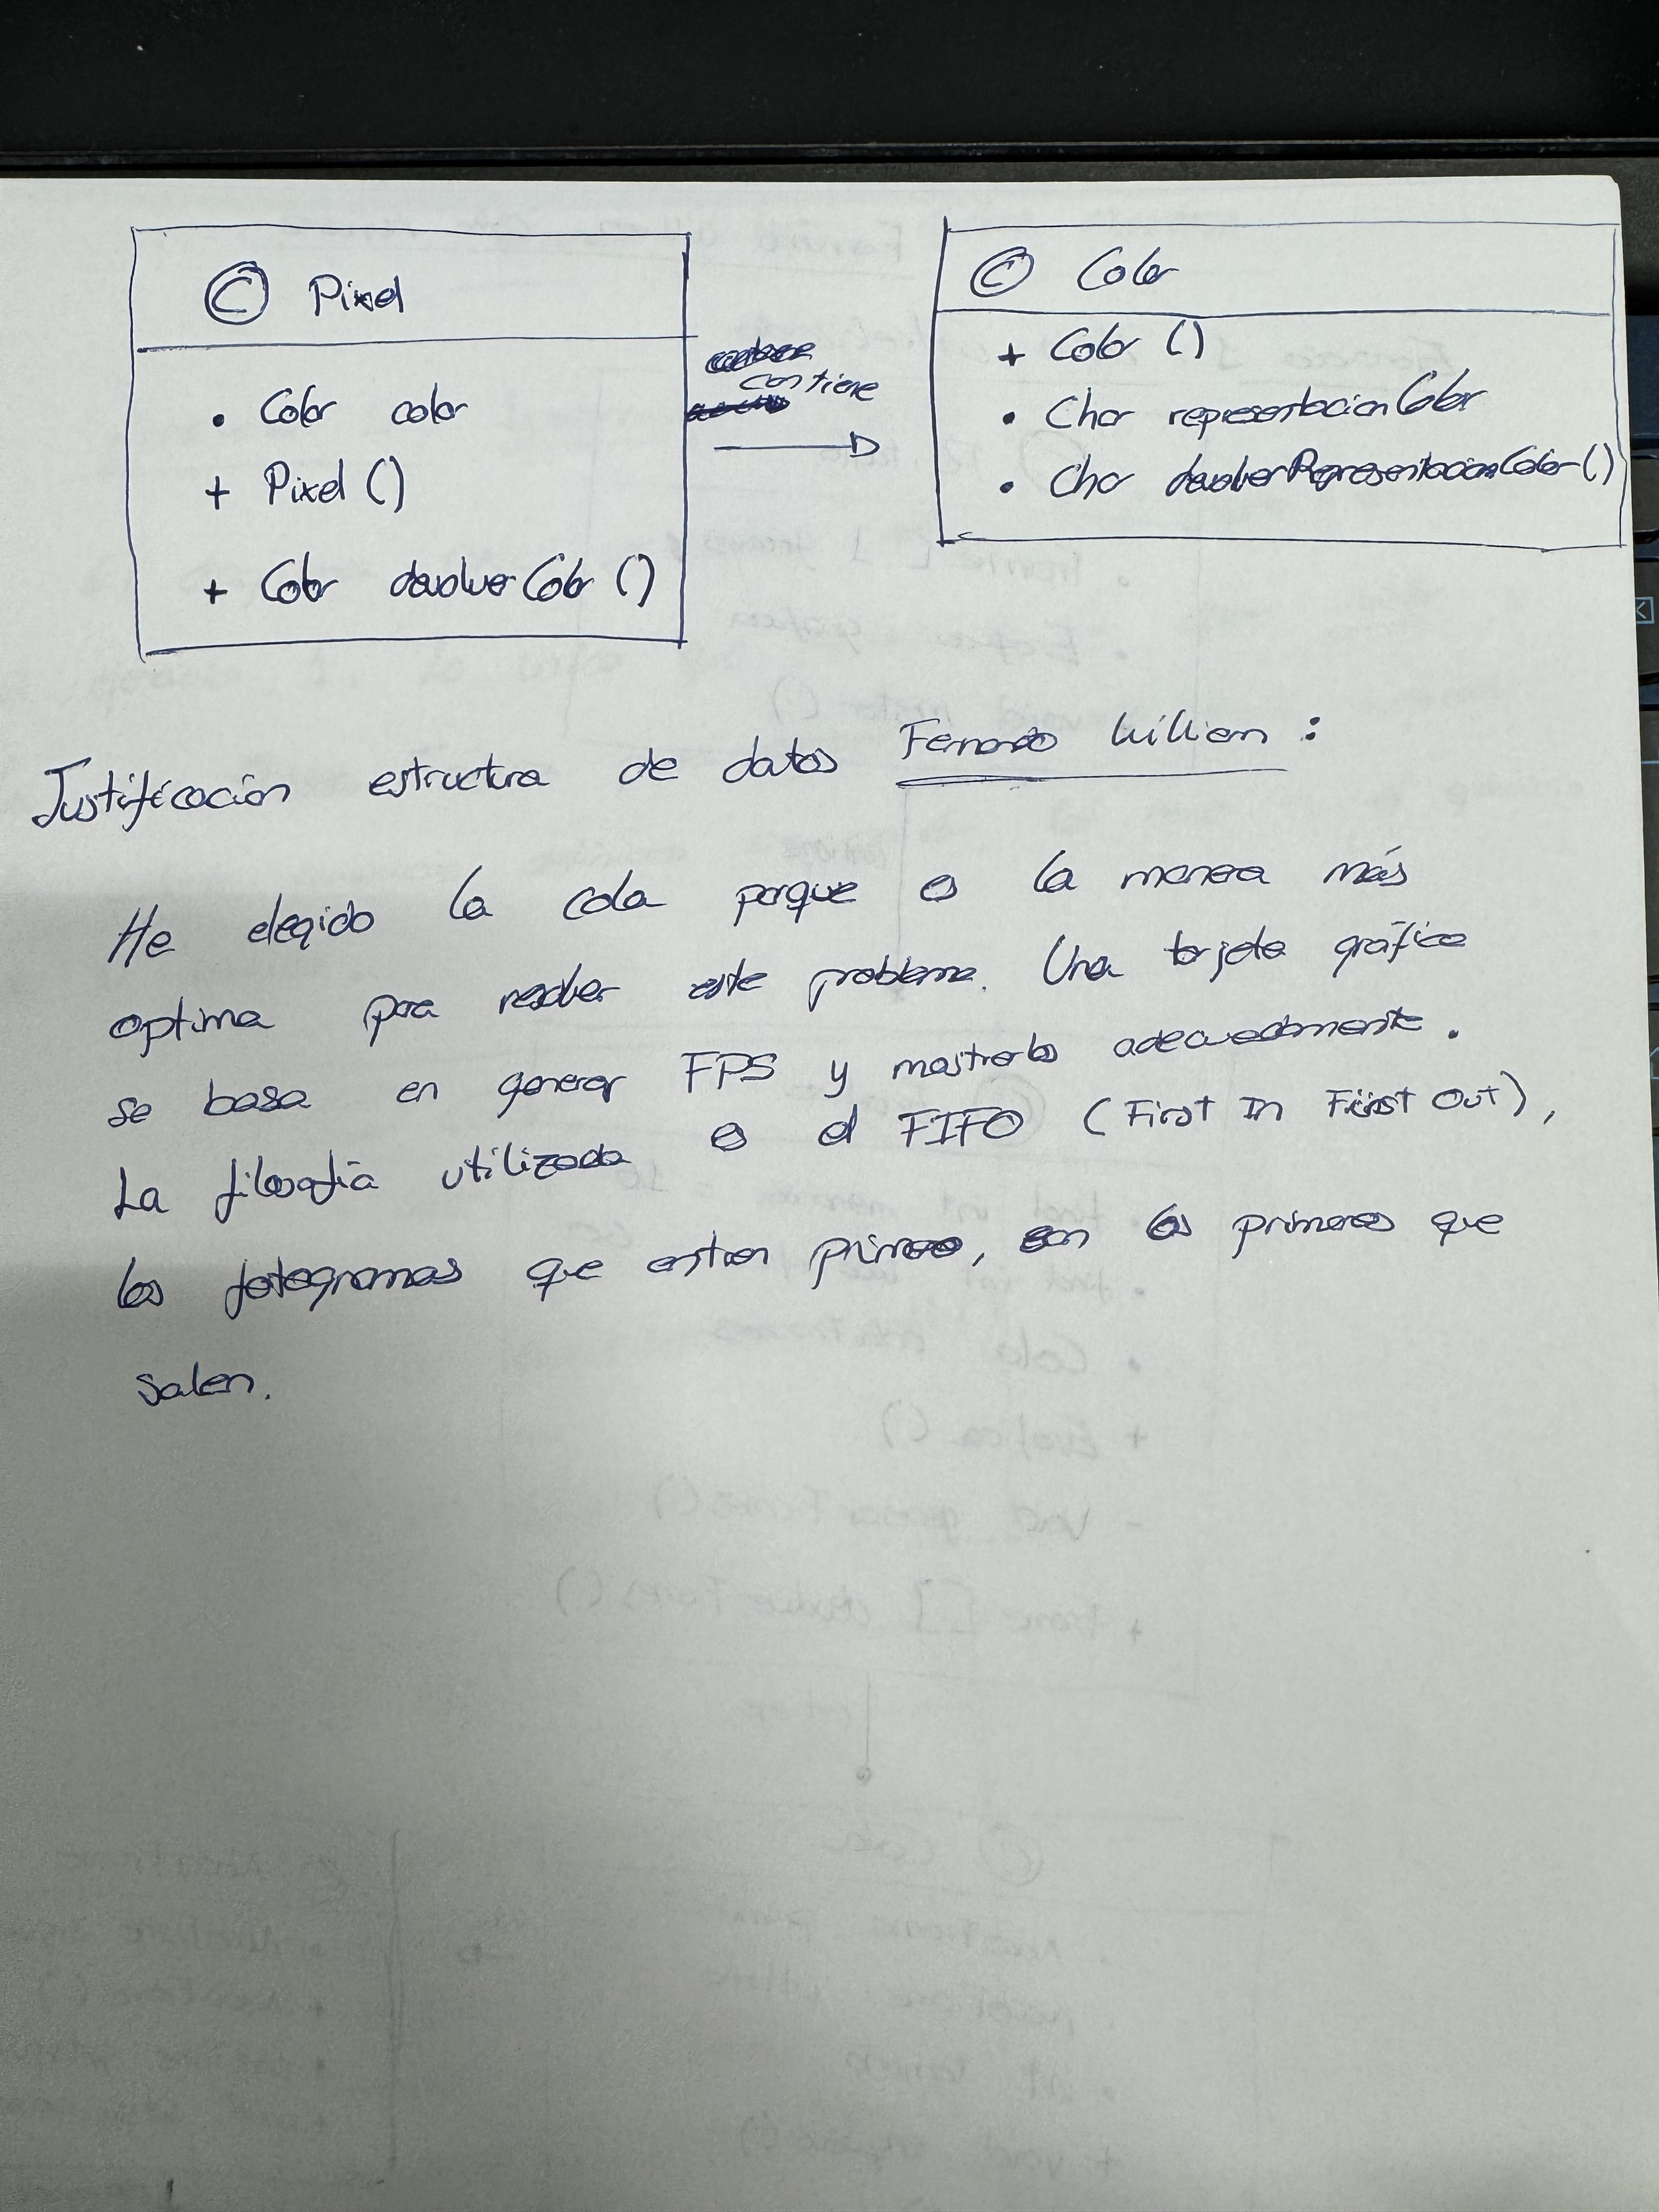 © Pixel
• Color color
+ Pixel ()
+ Color devolverColor ()
contiene
© Color
+ Color ()
• Char representacionColor
• Char devolverRepresentacionColor ()
Justificación estructura de datos Fernando Willian :
He elegido la cola porque es la manera más
optima para resolver este problema. Una tarjeta gráfica
se basa en generar FPS y mostrarlos adecuadamente.
La filosofía utilizada es el FIFO (First In First Out),
los fotogramas que entran primero, son los primeros que
salen.